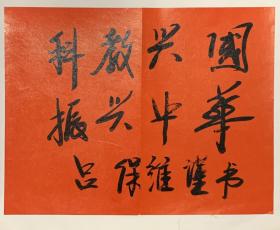 科教兴国
振兴中华
吕保维谨书